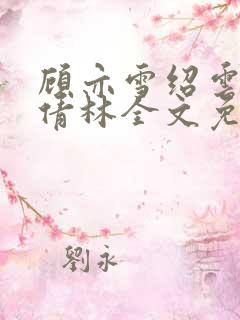 顾亦雪绍雲
倩林全文免
劉永